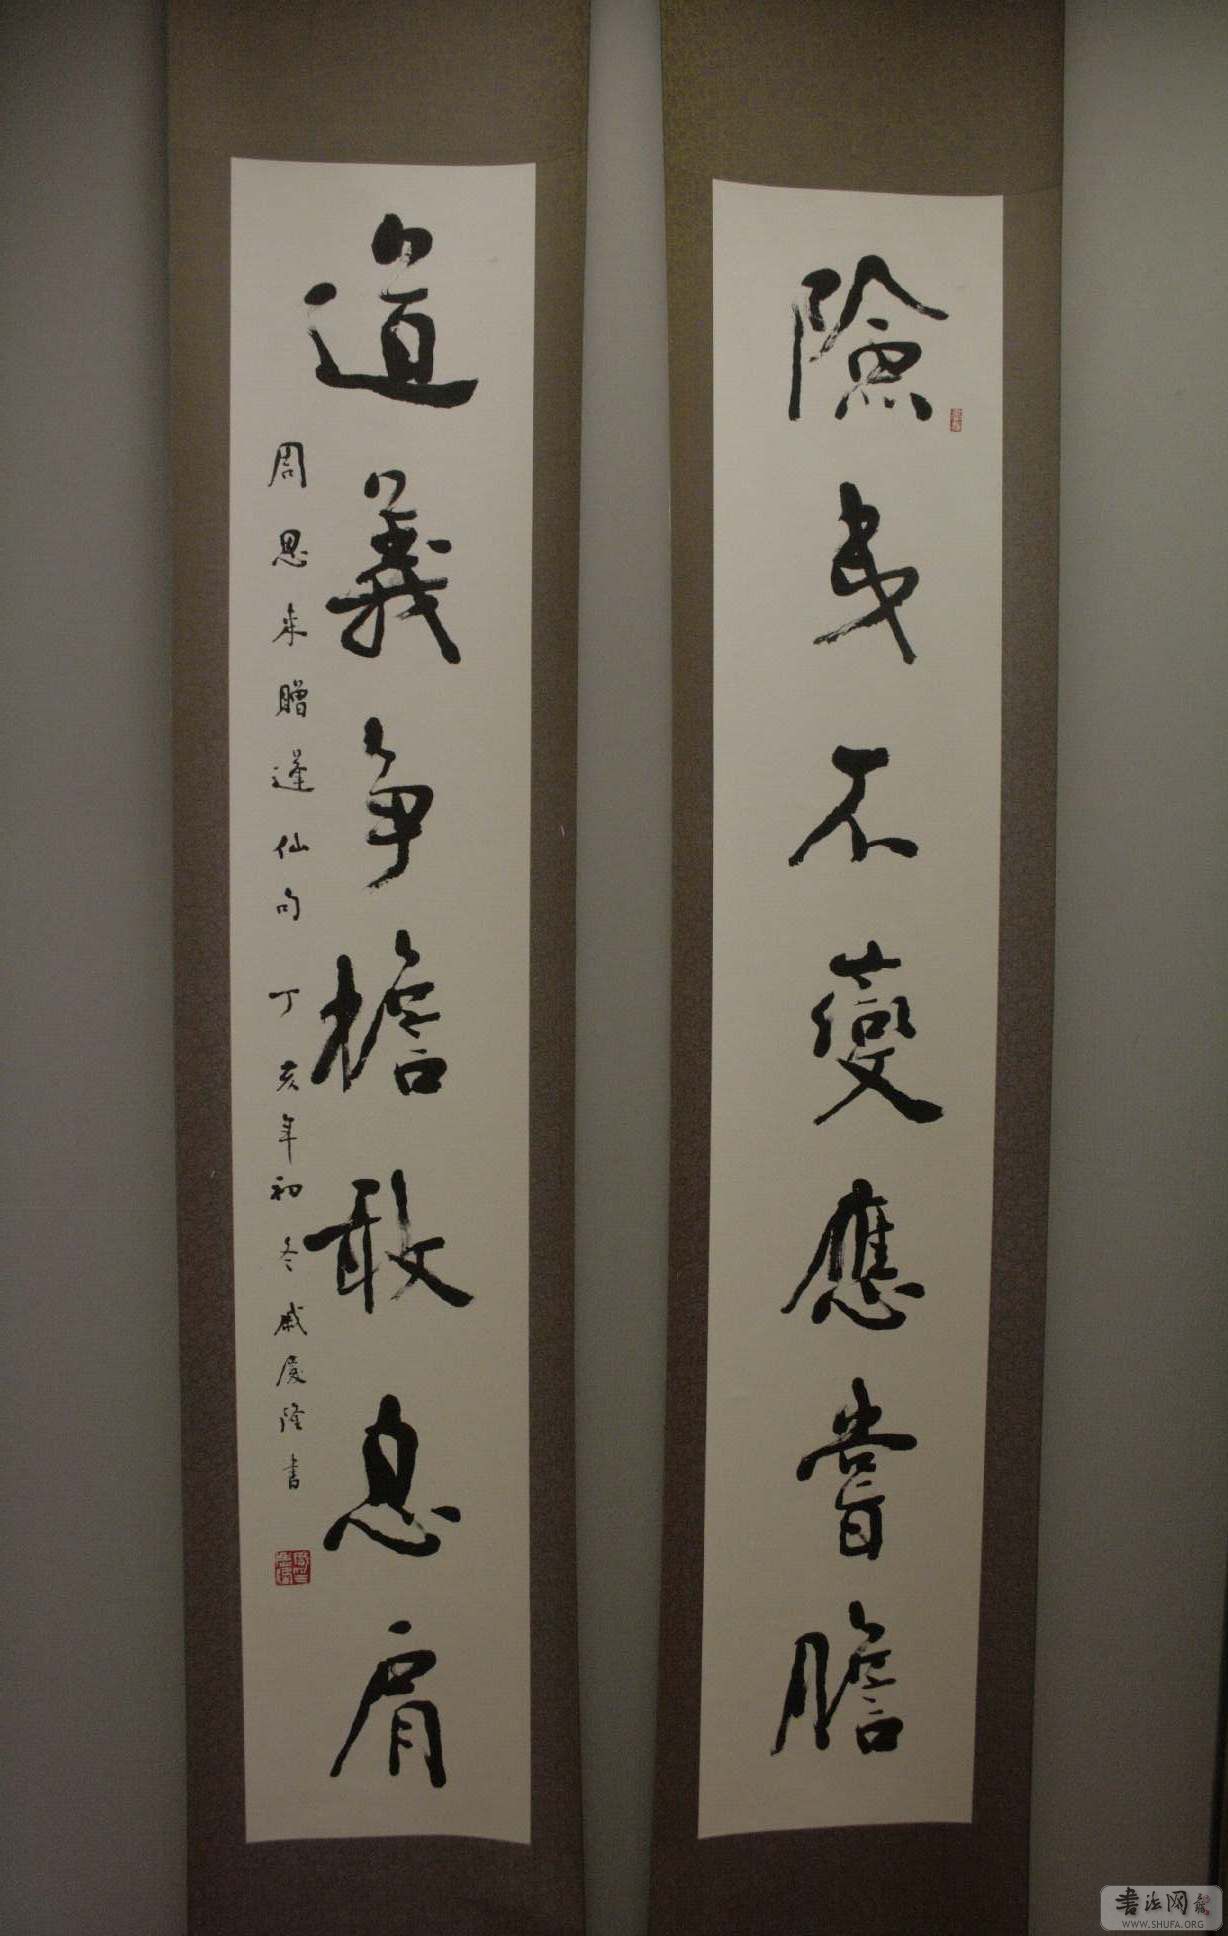 險夷不變應嘗膽
道義争擔敢息肩
周恩来贈蓬仙句 丁亥年初冬戚慶隆書
書法网
WWW.SHUFA.ORG